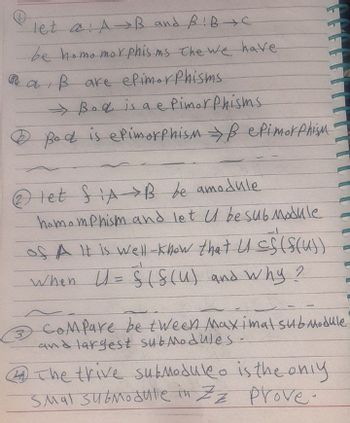 ① let α : A → B and β : B → C
be homomorphisms The we have
① α, β are epimorphisms
⇒ β∘α is a epimorphisms
② β∘α is epimorphism ⇒ β epimorphism
② let f : A → B be amodule
homomphism and let U be sub Module
of A It is well-know that U ⊆ f⁻¹(f(U))
when U = f⁻¹(f(U)) and why?
③ compare between Maximal submodule
and largest submodules.
④ The trive submodule o is the only
smal submodule in Z_Z prove.